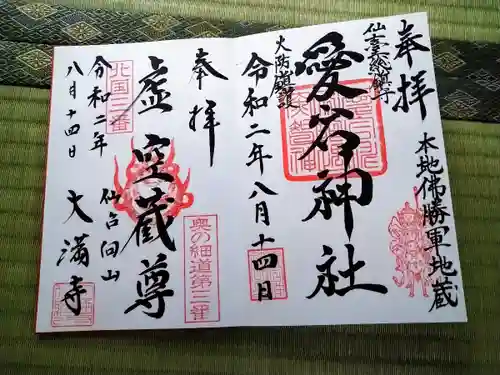 奉拝
本地佛勝軍地蔵
愛宕神社
火防鎮護
令和二年八月十四日
奉拝
虚空蔵尊
奥の細道第三番
北国三番
仙台向山
大満寺
令和二年
八月十四日